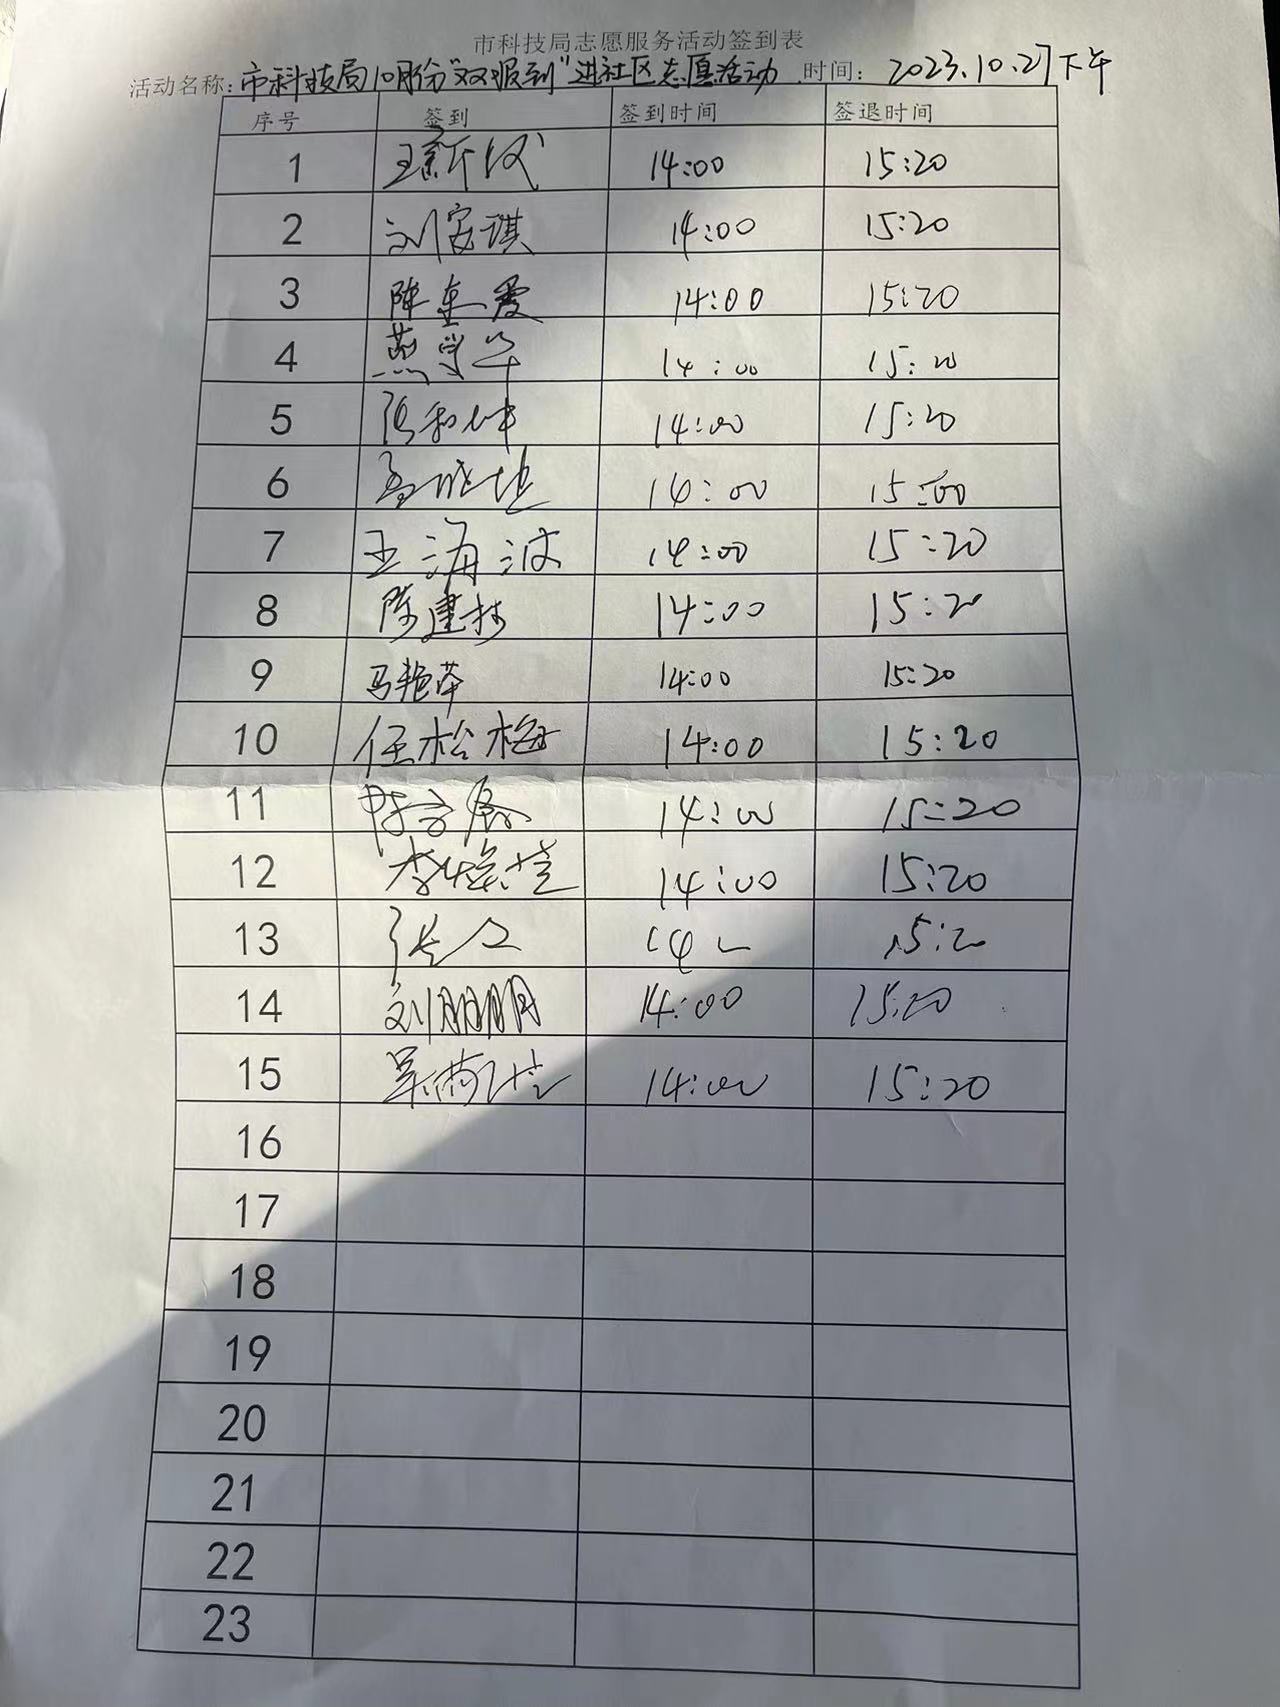 市科技局志愿服务活动签到表
活动名称：市科技局10月份"双报到"进社区志愿活动 时间：2023.10.27下午
序号 签到 签到时间 签退时间
1 14:00 15:20
2 刘家琪 14:00 15:20
3 陈东爱 14:00 15:20
4 燕学军 14:00 15:20
5 14:00 15:20
6 14:00 15:00
7 王海波 14:00 15:20
8 陈建树 14:00 15:20
9 马艳苹 14:00 15:20
10 任松梅 14:00 15:20
11 14:00 15:20
12 14:00 15:20
13 15:20
14 刘朋朋 14:00 15:20
15 14:00 15:20
16
17
18
19
20
21
22
23